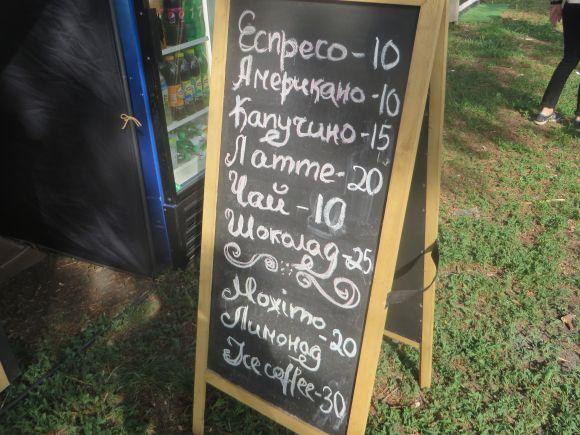 Еспресо-10
Американо-10
Капучино-15
Латте-20
Чай-10
Шоколад-25
Мохіто
Лимонад-20
Ice coffee-30